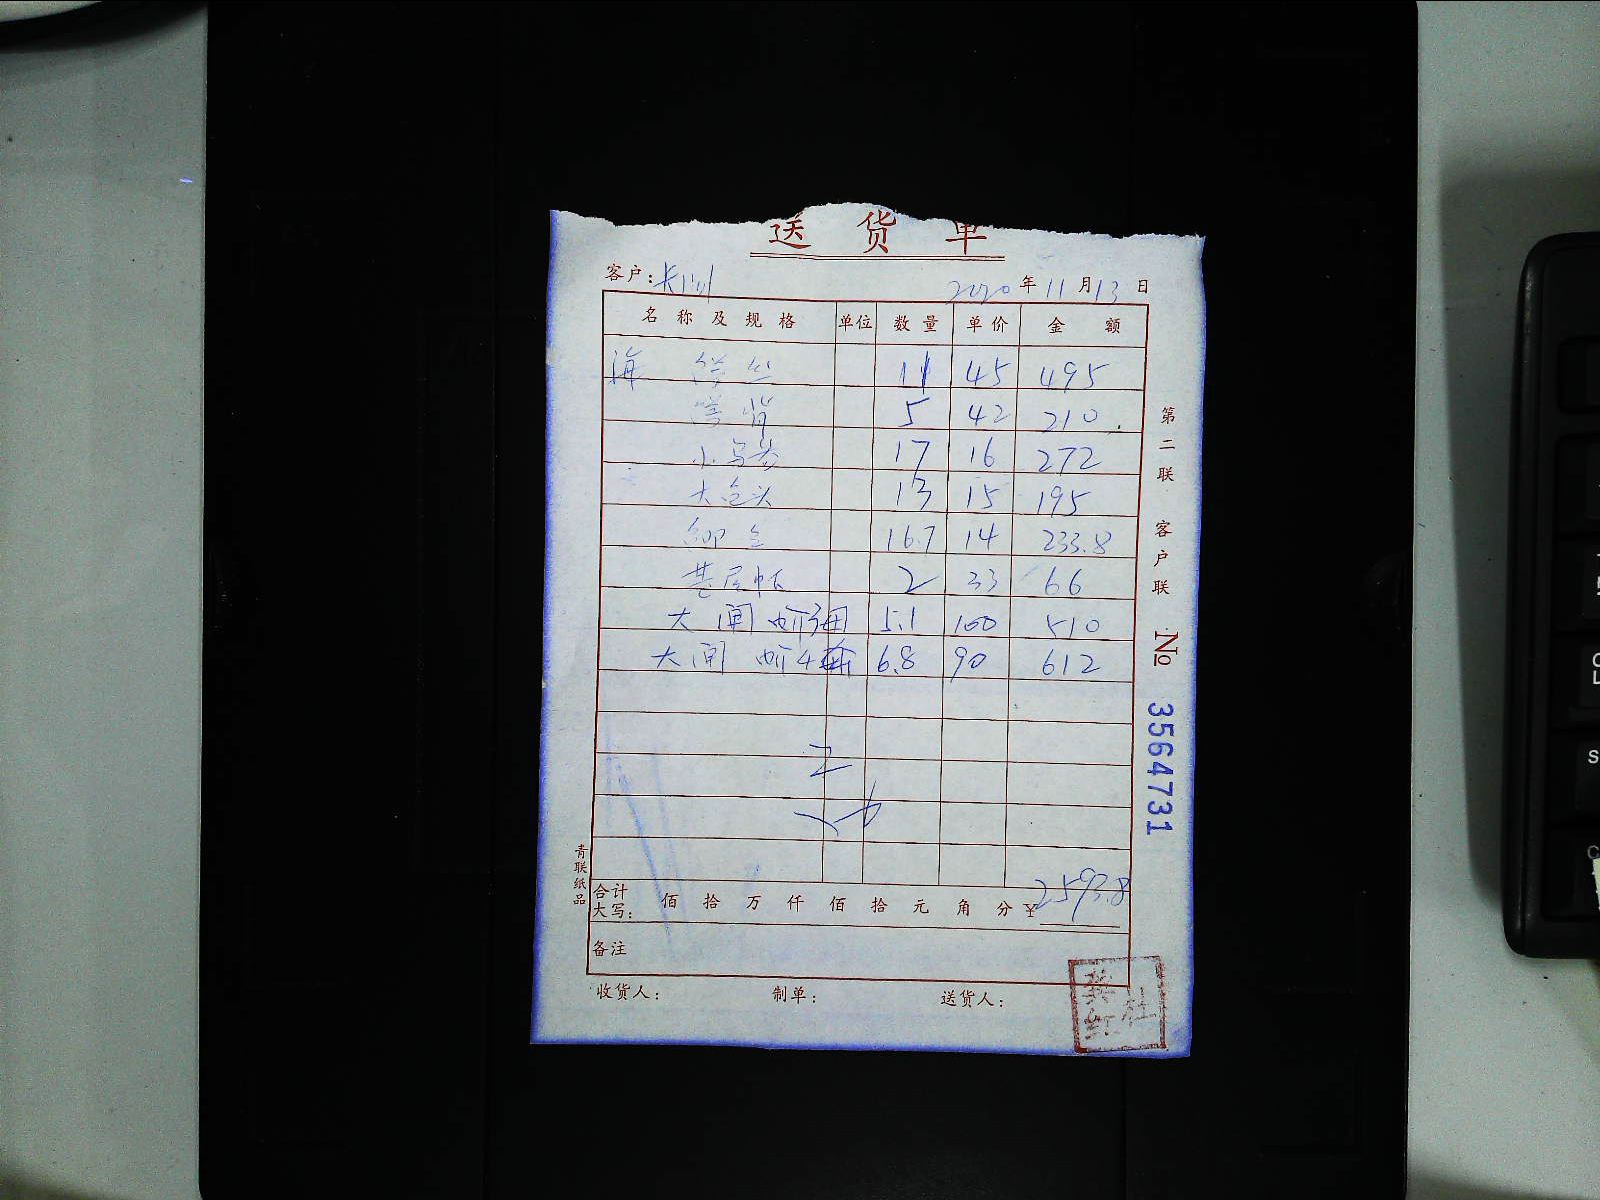 送货单
客户: 2020年11月13日
名称及规格 单位 数量 单价 金额
海 11 45 495
5 42 210
小乌参 17 16 272
大 头 13 15 195
16.7 14 233.8
基尾虾 2 33 66
大闸 5.1 100 510
大闸 6.8 90 612
合计
大写: 佰拾万仟佰拾元角分¥2593.8
备注
收货人: 制单: 送货人:
第二联 客户联 №3564731
青联纸品